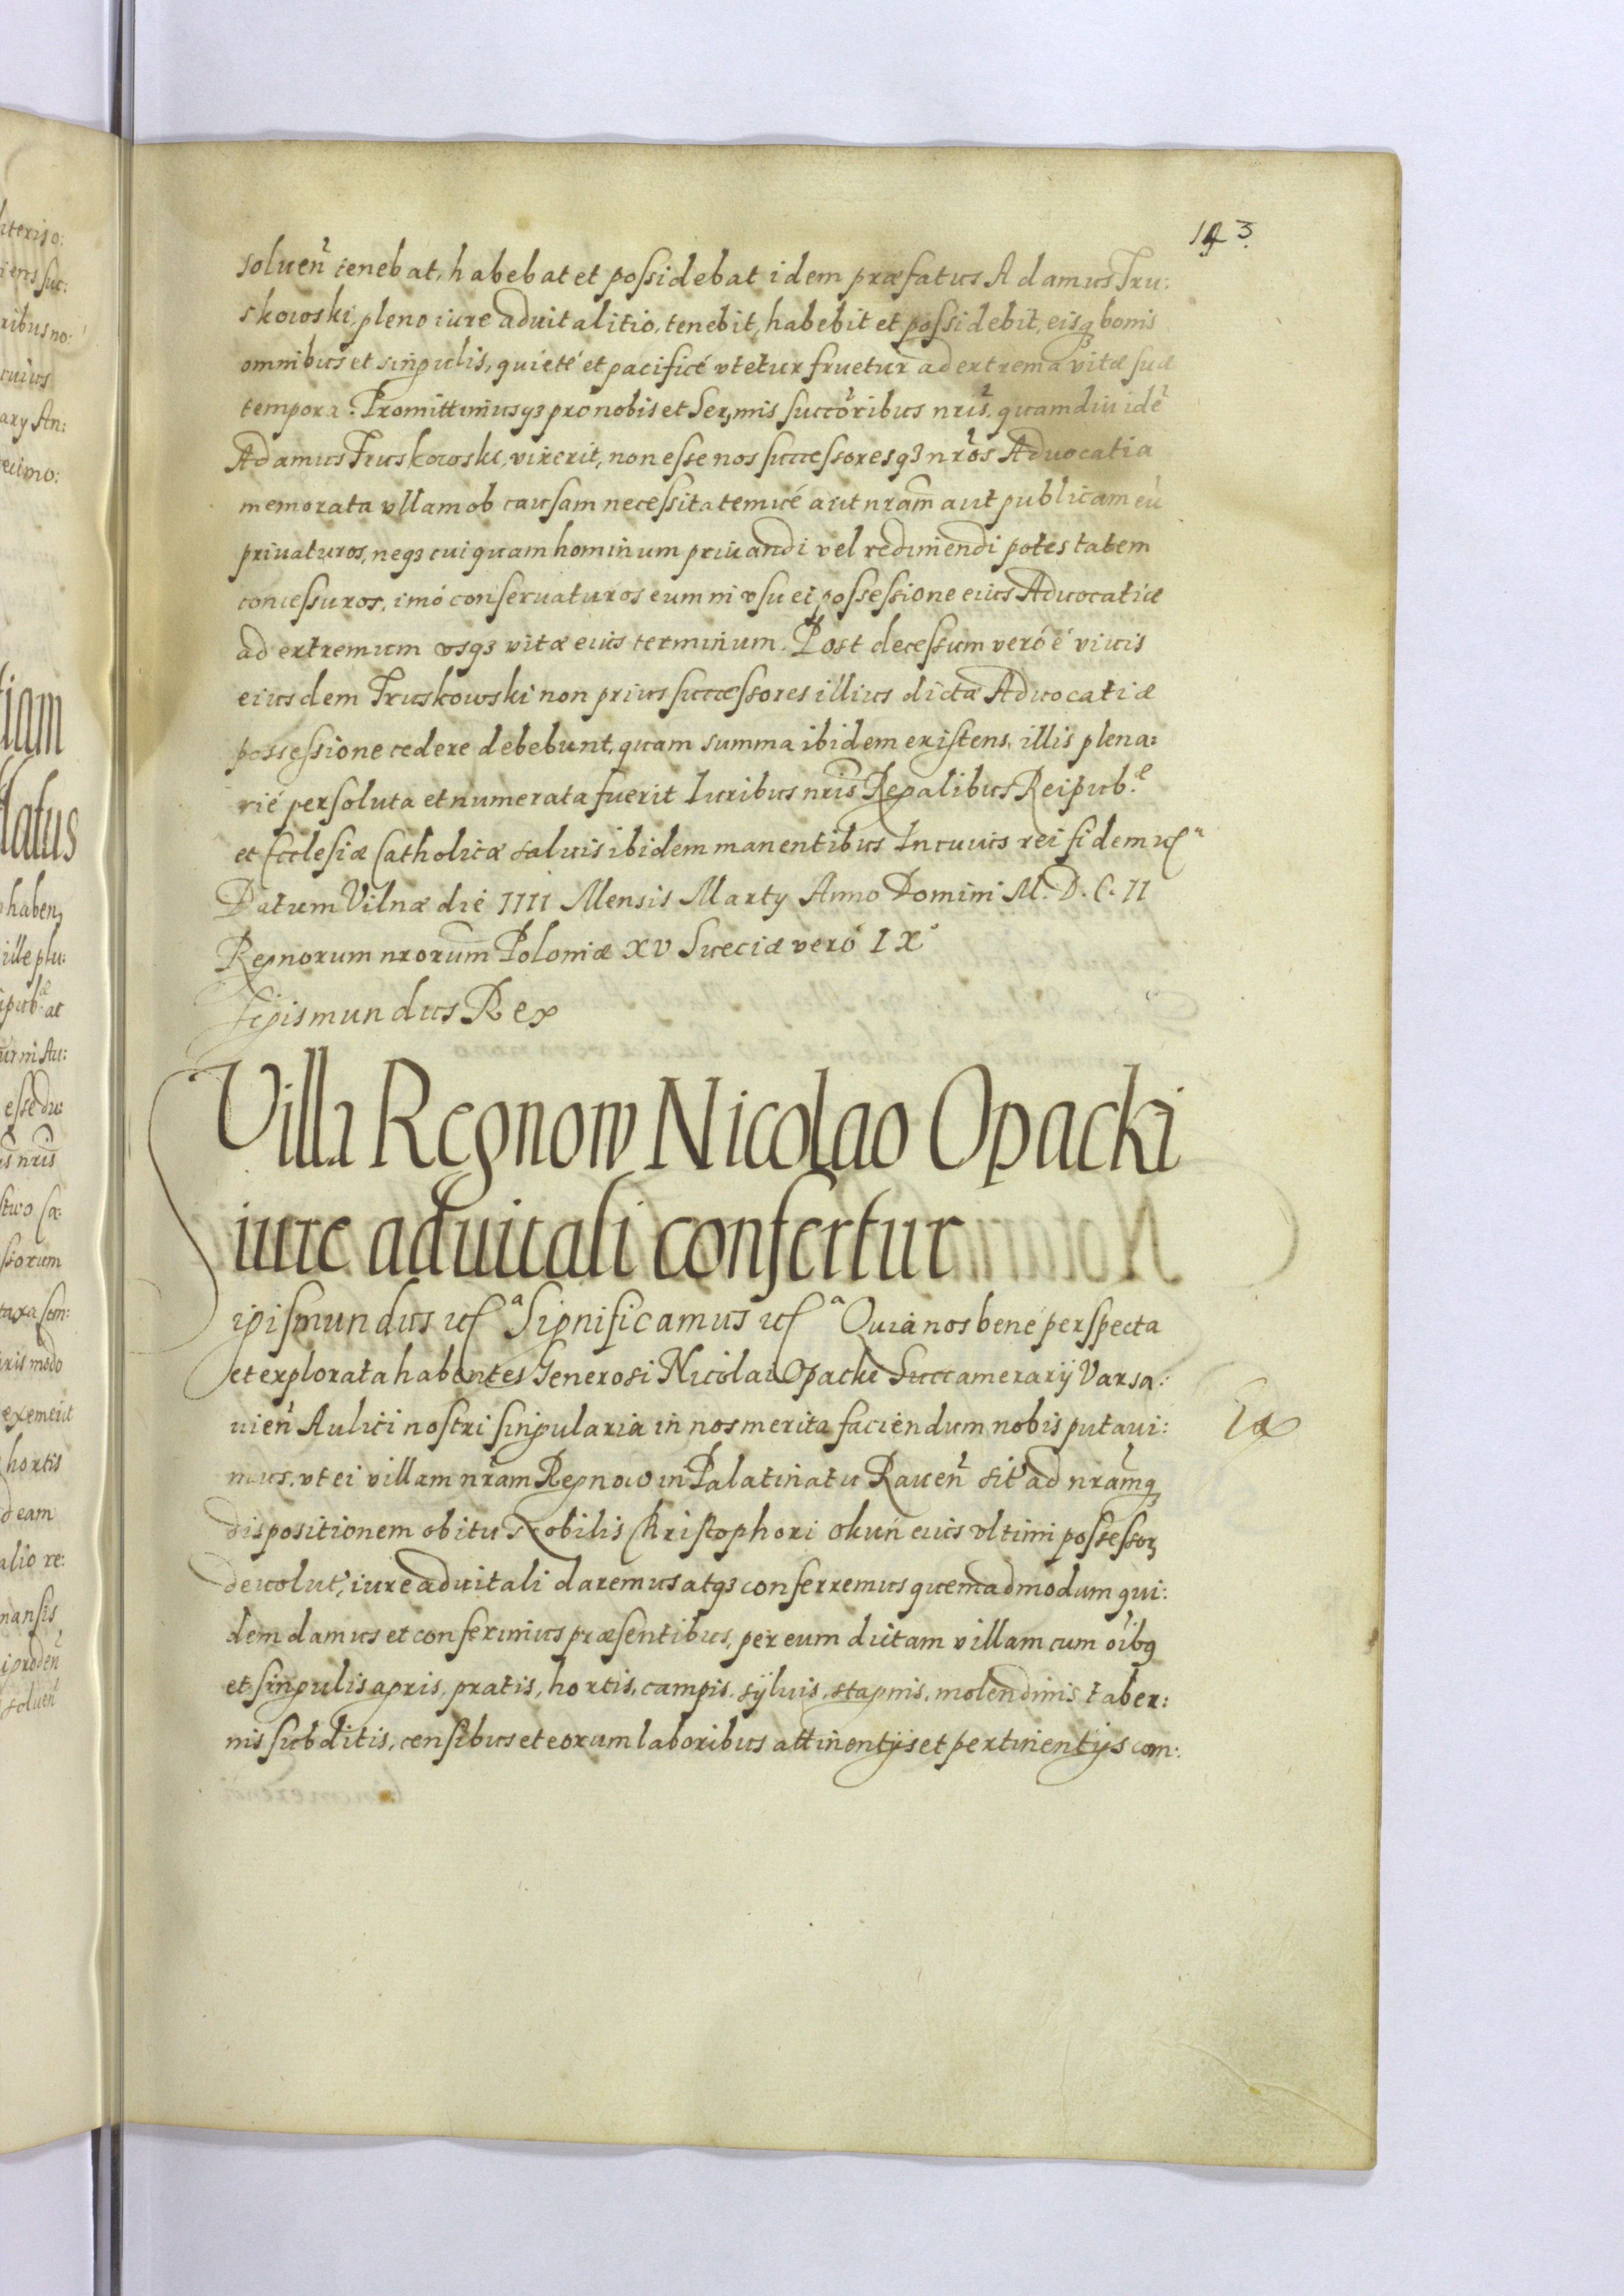 143
soluen̄ tenebat, habebat et possidebat idem præfatus Adamus Tru:
skowski, pleno iure aduitalitio, tenebit, habebit et possidebit, eisq3 bonis
omnibus et singulis, quieté et pacificé vtetur fruetur ad extrema vitæ suæ
tempora. Promittimusq3 pro nobis et Ser,mis succōribus nris̄, quamdiu idē
Adamus Truskowski, vixerit, non esse nos successoresq3 nrōs Aduocatia
memorata vllam ob causam necessitatemué aut nram̄ aut publicam eū
priuaturos, neq3 cuiquam hominum priuandi vel redimendi potestatem
concessuros, imó conseruaturos eum in vsu et possessione eius Aduocatiæ
ad extremum vsq3 vitæ eius terminum. Post decessum veró é viuis
eiusdem Truskowski non prius successores illius dictæ Aduocatiæ
possessione cedere debebunt, quam summa ibidem existens, illis plena:
rié persoluta et numerata fuerit Iuribus nris̄ Regalibus Reipub.æ
et Ecclesiæ Catholicæ saluis ibidem manentibus In cuius rei fidem ucͣ
Datum Vilnæ die IIII Mensis Marty Anno Domini M. D. C. II
Regnorum nrorum̄ Poloniæ XV Sueciæ veró IX°
Sigismundus Rex
Villa Regnow Nicolao Opacki
iure aduitali confertur
Sigismundus ucͣ Significamus ucͣ Quia nos bené perspecta
et explorata habentes Generosi Nicolai Opacki Succamerarÿ Varsa:
uien̄ Aulici nostri singularia in nos merita faciendum nobis putaui:
mus, vt ei villam nram̄ Regnow in Palatinatu Rauen̄ sit' ad nram̄q3
dispositionem obitu Nobilis Christophori Okuń eius vltimi possessor
deuolut', iure aduitali daremus atq3 conferremus quemadmodum qui:
dem damus et conferimus præsentibus, per eum dictam villam cum oib9
et singulis agris, pratis, hortis, campis, syluis, stagnis, molendinis taber:
nis subditis, censibus et eorum laboribus attinentÿs et pertinentÿs com: